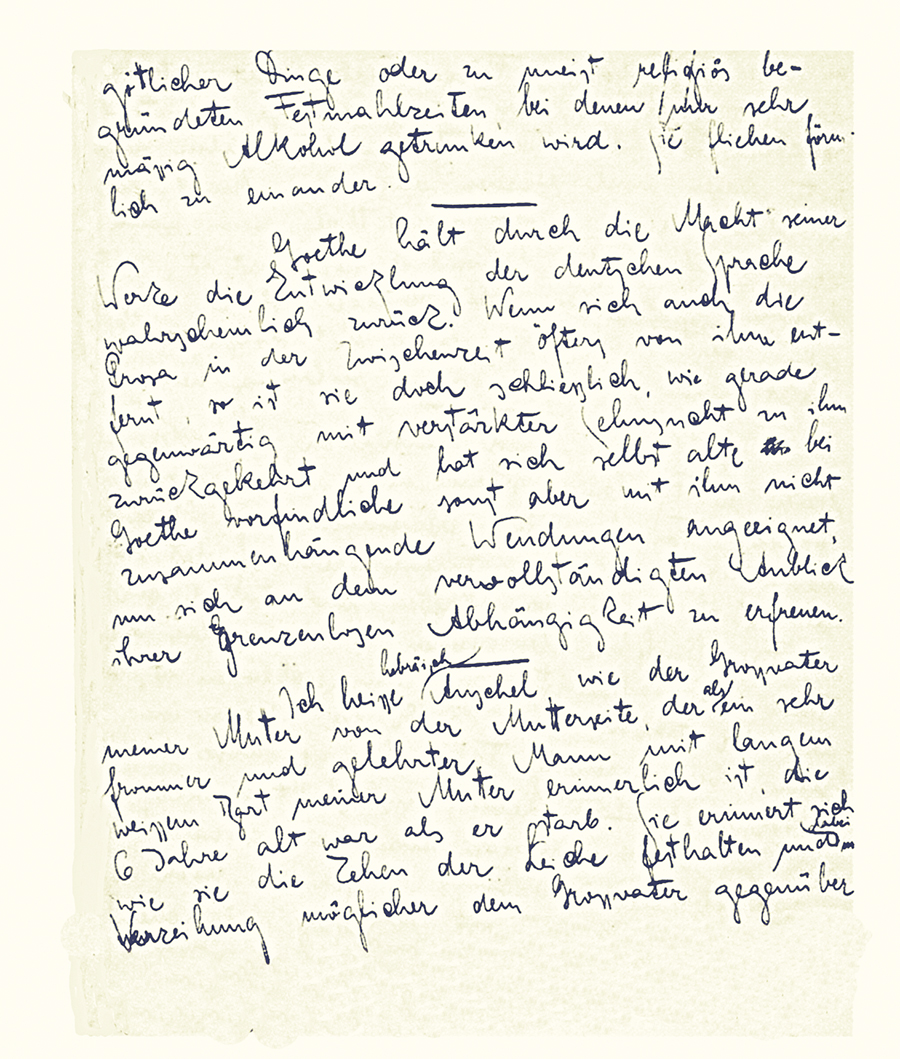 göttlicher Dinge oder zu meist religiös be-
gründeten Festmahlzeiten, bei denen nur sehr
mässig Alkohol getrunken wird. Sie fliehen förm-
lich zu einander.
Goethe hält durch die Macht seiner
Werke die Entwicklung der deutschen Sprache
wahrscheinlich zurück. Wenn sich auch die
Prosa in der Zwischenzeit öfters von ihm ent-
fernt, so ist sie doch schliesslich, wie gerade
gegenwärtig mit verstärkter Sehnsucht zu ihm
zurückgekehrt und hat sich selbst alte bei
Goethe vorfindliche sonst aber mit ihm nicht
zusammenhängende Wendungen angeeignet,
um sich an dem vervollständigten Anblick
ihrer grenzenlosen Abhängigkeit zu erfreuen.
Ich heisse hebräisch Anschel, wie der Grossvater
meiner Mutter von der Mutterseite, der als ein sehr
frommer und gelehrter Mann mit langem
weissem Bart meiner Mutter erinnerlich ist, die
6 Jahre alt war als er starb. Sie erinnert sich
wie sie die Zehen der Leiche festhalten und dabei
Verzeihung möglicher dem Grossvater gegenüber